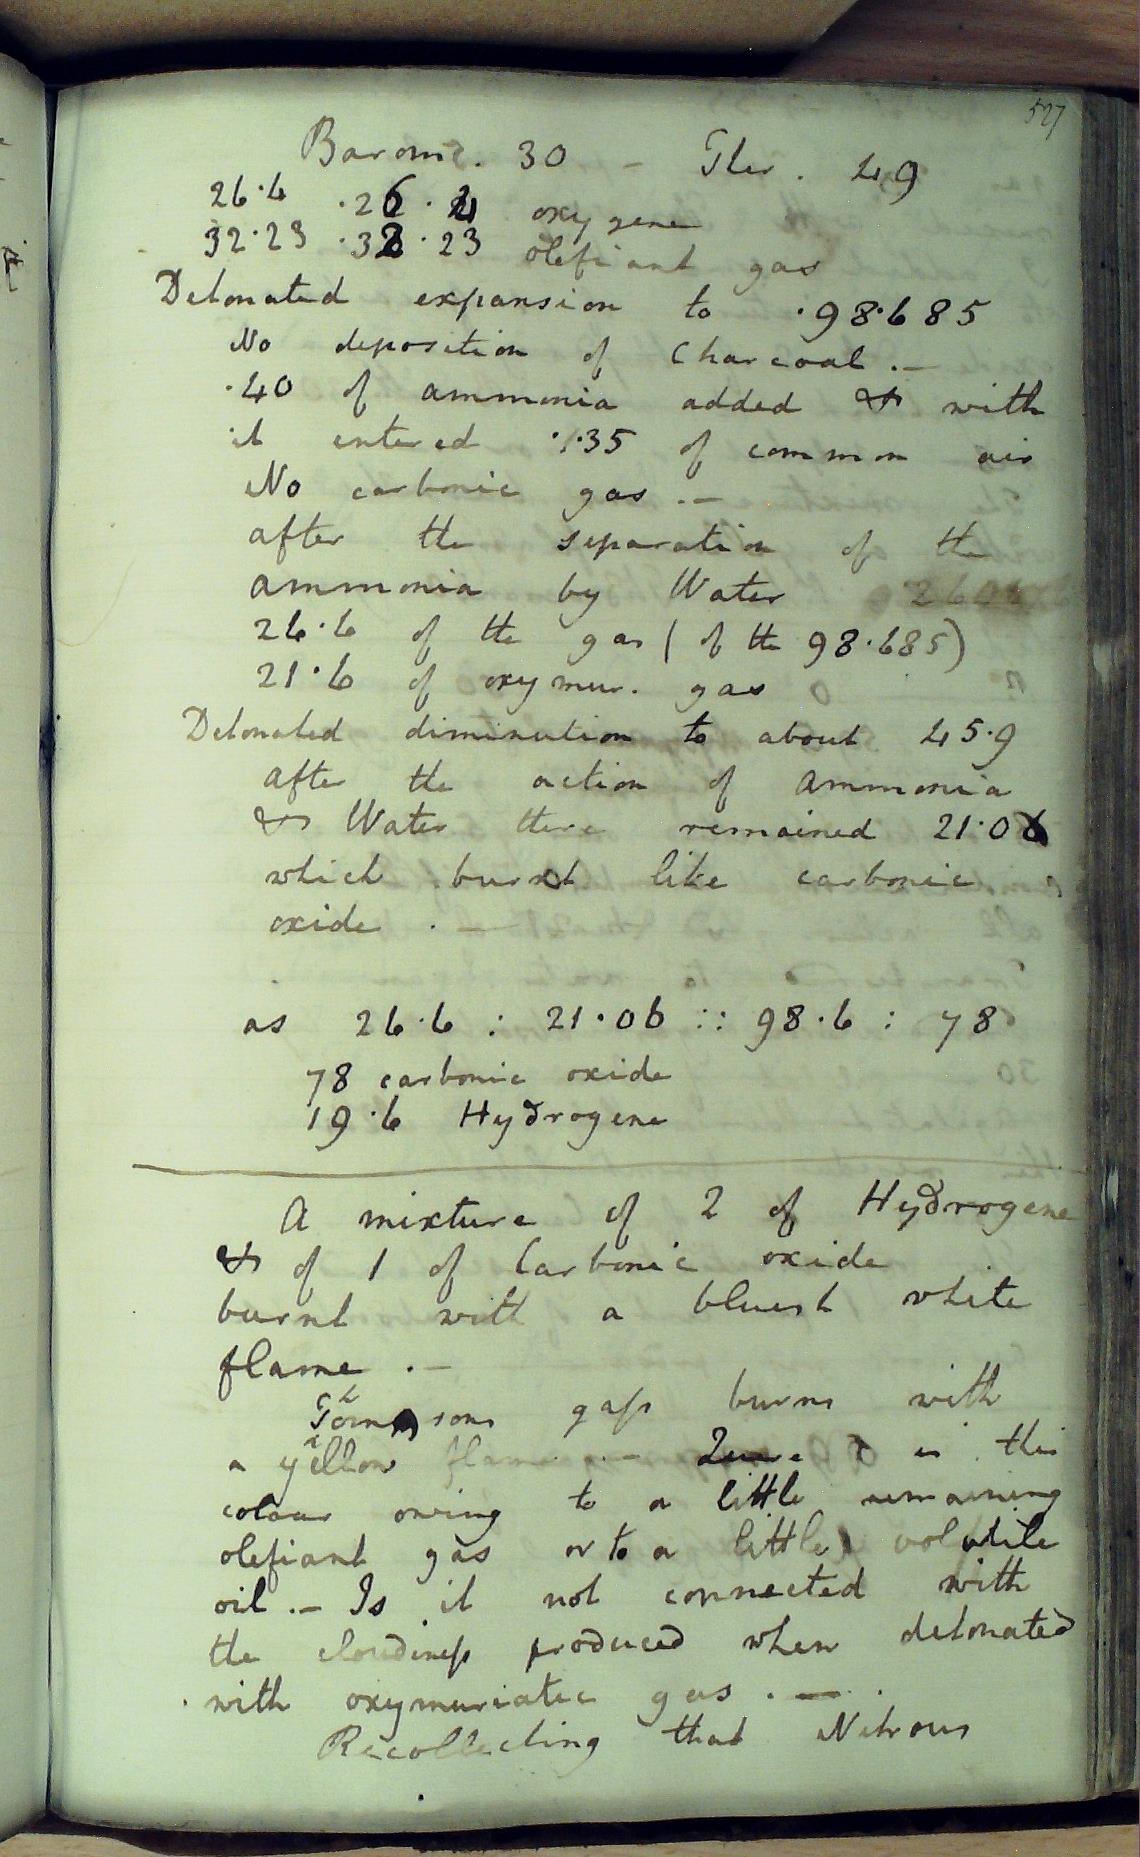 527
Barome. 30 - Ther. 49
26.4 .26.4 oxygene
32.23 .32.23 olefiant gas
Detonated expansion to .98.685
No deposition of Charcoal. —
.40 of ammonia added & with
it entered .1.35 of common air
No carbonic gas. —
after the separation of the
ammonia by Water
26.6 of the gas (of the 98.685)
21.6 of oxymur. gas
Detonated diminution to about 45.9
after the action of ammonia
& Water there remained 21.06
which burnt like carbonic
oxide. —
as 26.6 : 21.06 :: 98.6 : 78
78 carbonic oxide
19.6 Hydrogene
A mixture of 2 of Hydrogene
& of 1 of Carbonic oxide
burnt with a bluish white
flame. —
Thomsons gass burns with
a yellow flame. — Quere is this
colour owing to a little remaining
olefiant gas or to a little volatile
oil. — Is it not connected with
the cloudiness produced when detonated
with oxymuriatic gas. —
Recollecting that Nitrous